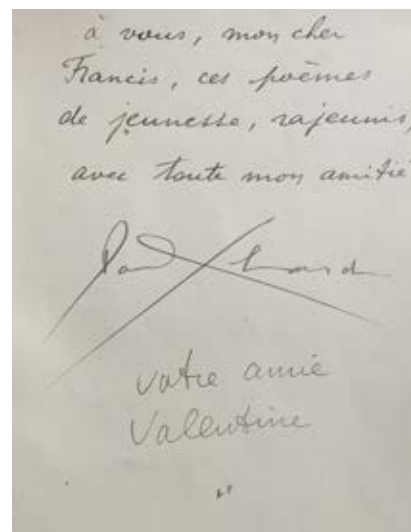 à vous, mon cher
Francis, ces poèmes
de jeunesse, rajeunis,
avec toute mon amitié
Paul Eluard
votre amie
Valentine